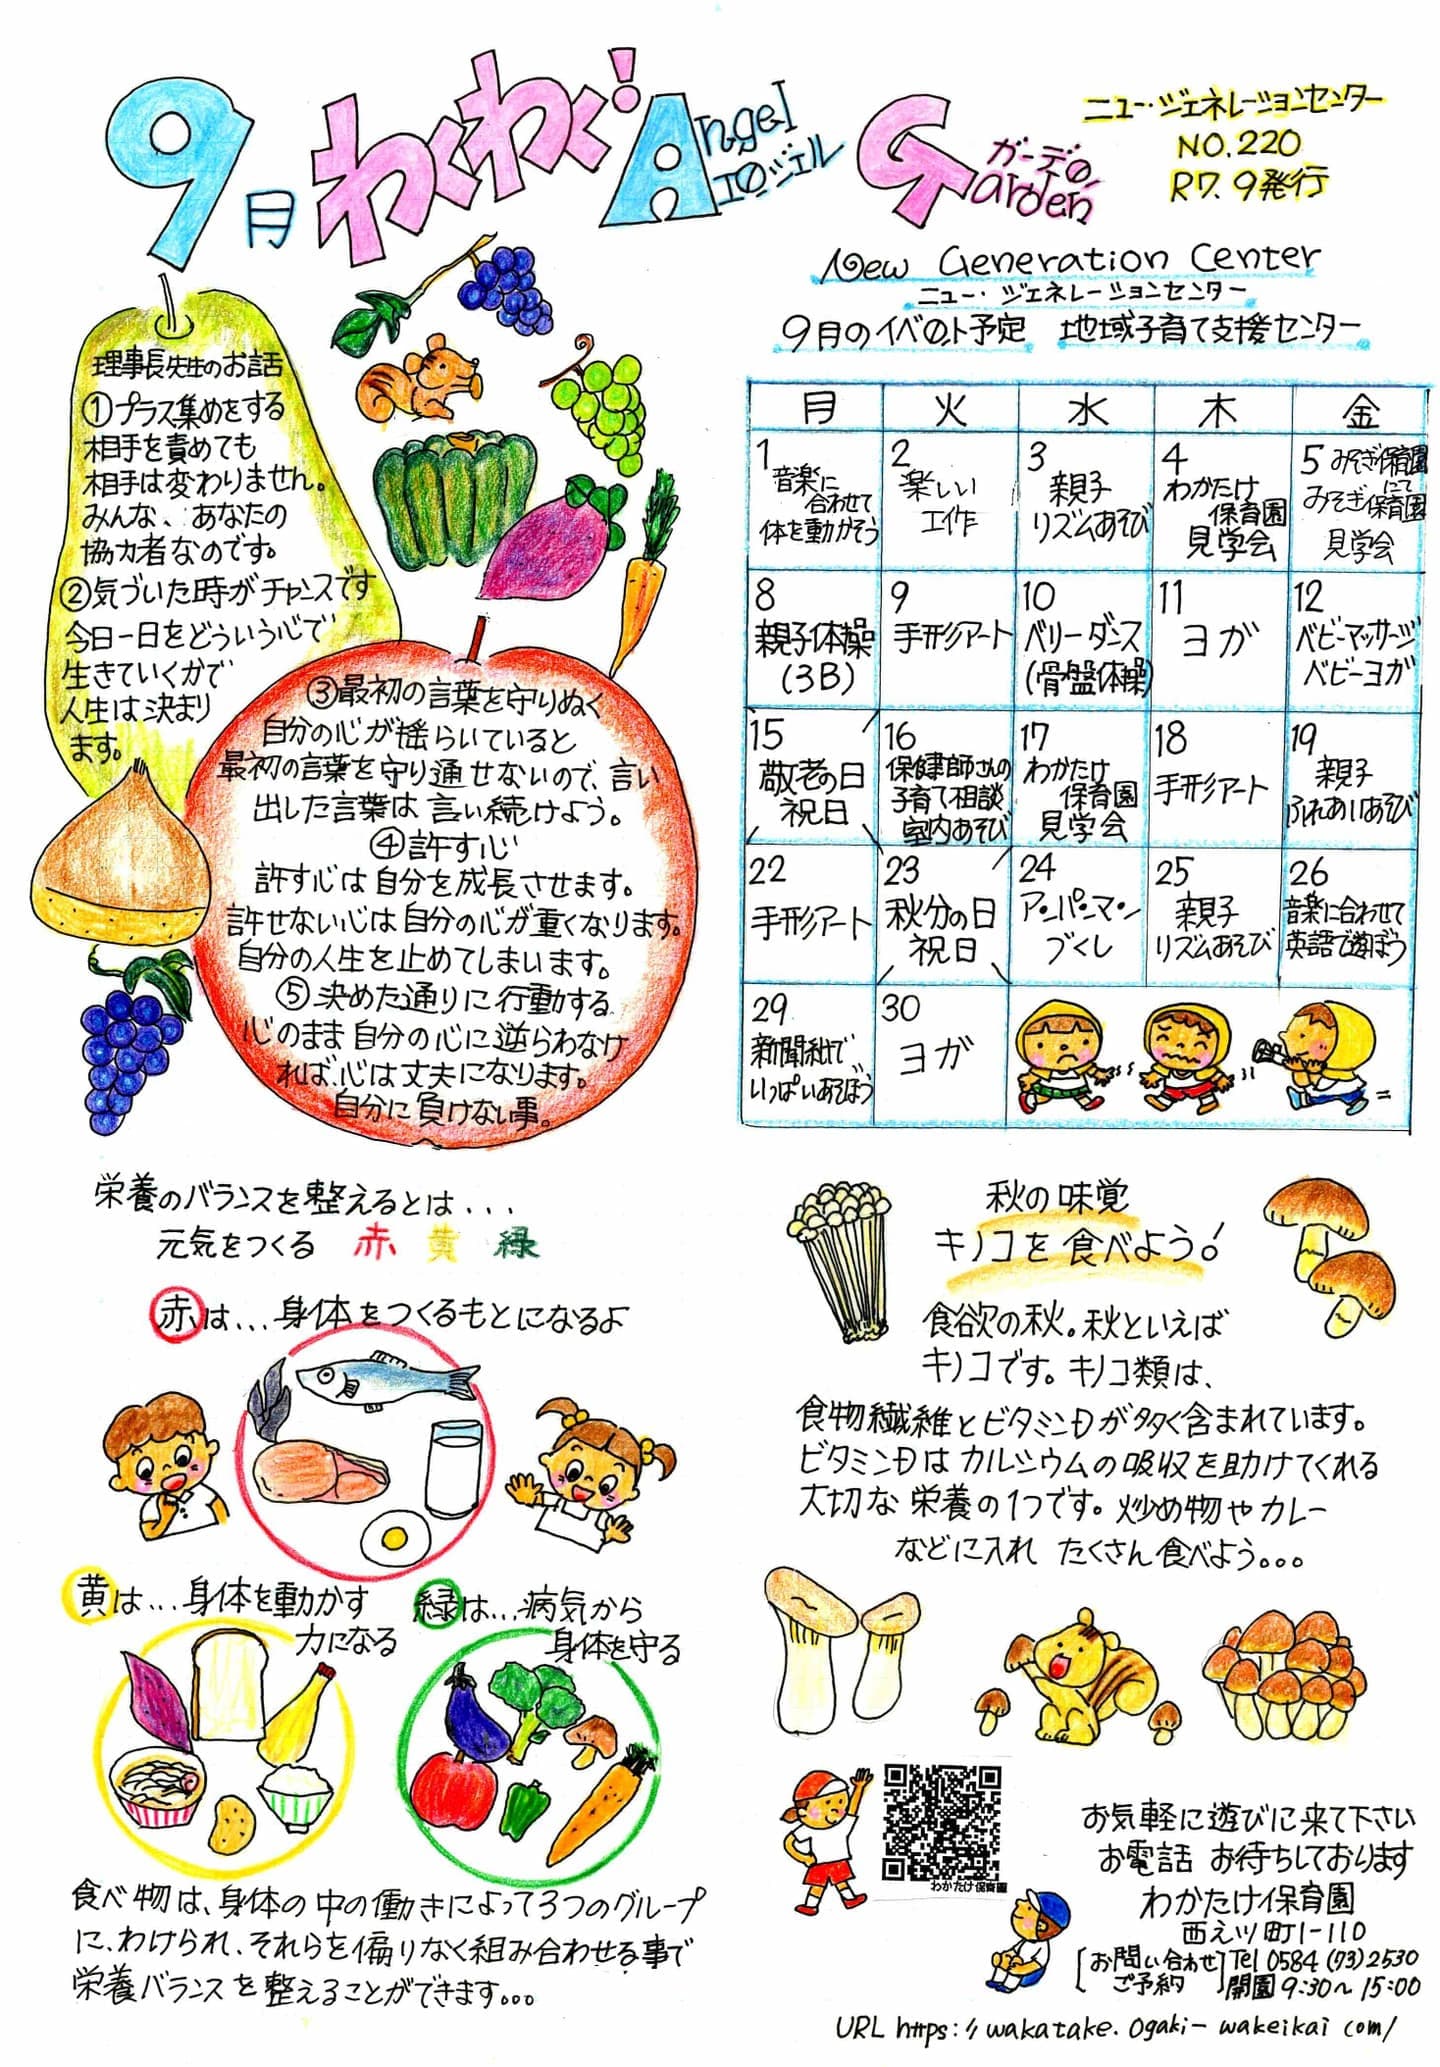 9月 わくわく! Angel エンジェル Garden ガーデン
ニュー・ジェネレーションセンター
NO.220
R7.9発行
New Generation Center
ニュー・ジェネレーションセンター
9月のイベント予定 地域子育て支援センター
理事長先生のお話
①プラス集めをする
相手を責めても
相手は変わりません。
みんな、あなたの
協力者なのです。
②気づいた時がチャンスです
今日一日をどういう心で
生きていくかで
人生は決まり
ます。
③最初の言葉を守りぬく
自分の心が揺らいでいると
最初の言葉を守り通せないので、言い
出した言葉は言い続けよう。
④許す心
許す心は自分を成長させます。
許せない心は自分の心が重くなります。
自分の人生を止めてしまいます。
⑤決めた通りに行動する
心のまま自分の心に逆らわなけ
れば、心は丈夫になります。
自分に負けない事。
月 火 水 木 金
1
音楽に
合わせて
体を動かそう
2
楽しい
工作
3
親子
リズムあそび
4
わかたけ
保育園
見学会
5 みそぎ保育園
にて
みそぎ保育園
見学会
8
親子体操
(3B)
9
手形アート
10
ベリーダンス
(骨盤体操)
11
ヨガ
12
ベビーマッサージ
ベビーヨガ
15
敬老の日
祝日
16
保健師さんの
子育て相談
室内あそび
17
わかたけ
保育園
見学会
18
手形アート
19
親子
ふれあいあそび
22
手形アート
23
秋分の日
祝日
24
アンパンマン
づくし
25
親子
リズムあそび
26
音楽に合わせて
英語で遊ぼう
29
新聞紙で
いっぱいあそぼう
30
ヨガ
栄養のバランスを整えるとは...
元気をつくる 赤 黄 緑
赤は...身体をつくるもとになるよ
黄は...身体を動かす
力になる
緑は...病気から
身体を守る
食べ物は、身体の中の働きによって3つのグループ
に、わけられ、それらを偏りなく組み合わせる事で
栄養バランスを整えることができます。。。
秋の味覚
キノコを食べよう!
食欲の秋。秋といえば
キノコです。キノコ類は、
食物繊維とビタミンDが多く含まれています。
ビタミンDはカルシウムの吸収を助けてくれる
大切な栄養の1つです。炒め物やカレー
などに入れ たくさん食べよう。。。
わかたけ保育園
お気軽に遊びに来て下さい
お電話 お待ちしております
わかたけ保育園
西えツ町1-110
[お問い合わせ
ご予約] Tel 0584(73)2530
開園9:30~15:00
URL https://wakatake.ogaki-wakeikai com/